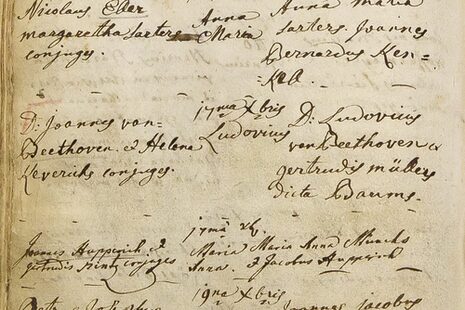 Nicolaus Eber
margaretha Sarters
conjuges.
Anna
Maria
Anna maria
Sarters. Joannes
Bernardus Ken=
D: Joannes van=
Beethoven. & Helena
Keverichs conjuges.
17ma Xbris
Ludovicus
D: Ludovicus
van Beethoven &
gertrudis müllers
dicta Baums.
Joannes Hupperich &
Gertrudis conjuges
17mâ
Maria
Anna.
Maria Anna
& Jacobus Hupperich
19na Xbris
Joannes jacobus